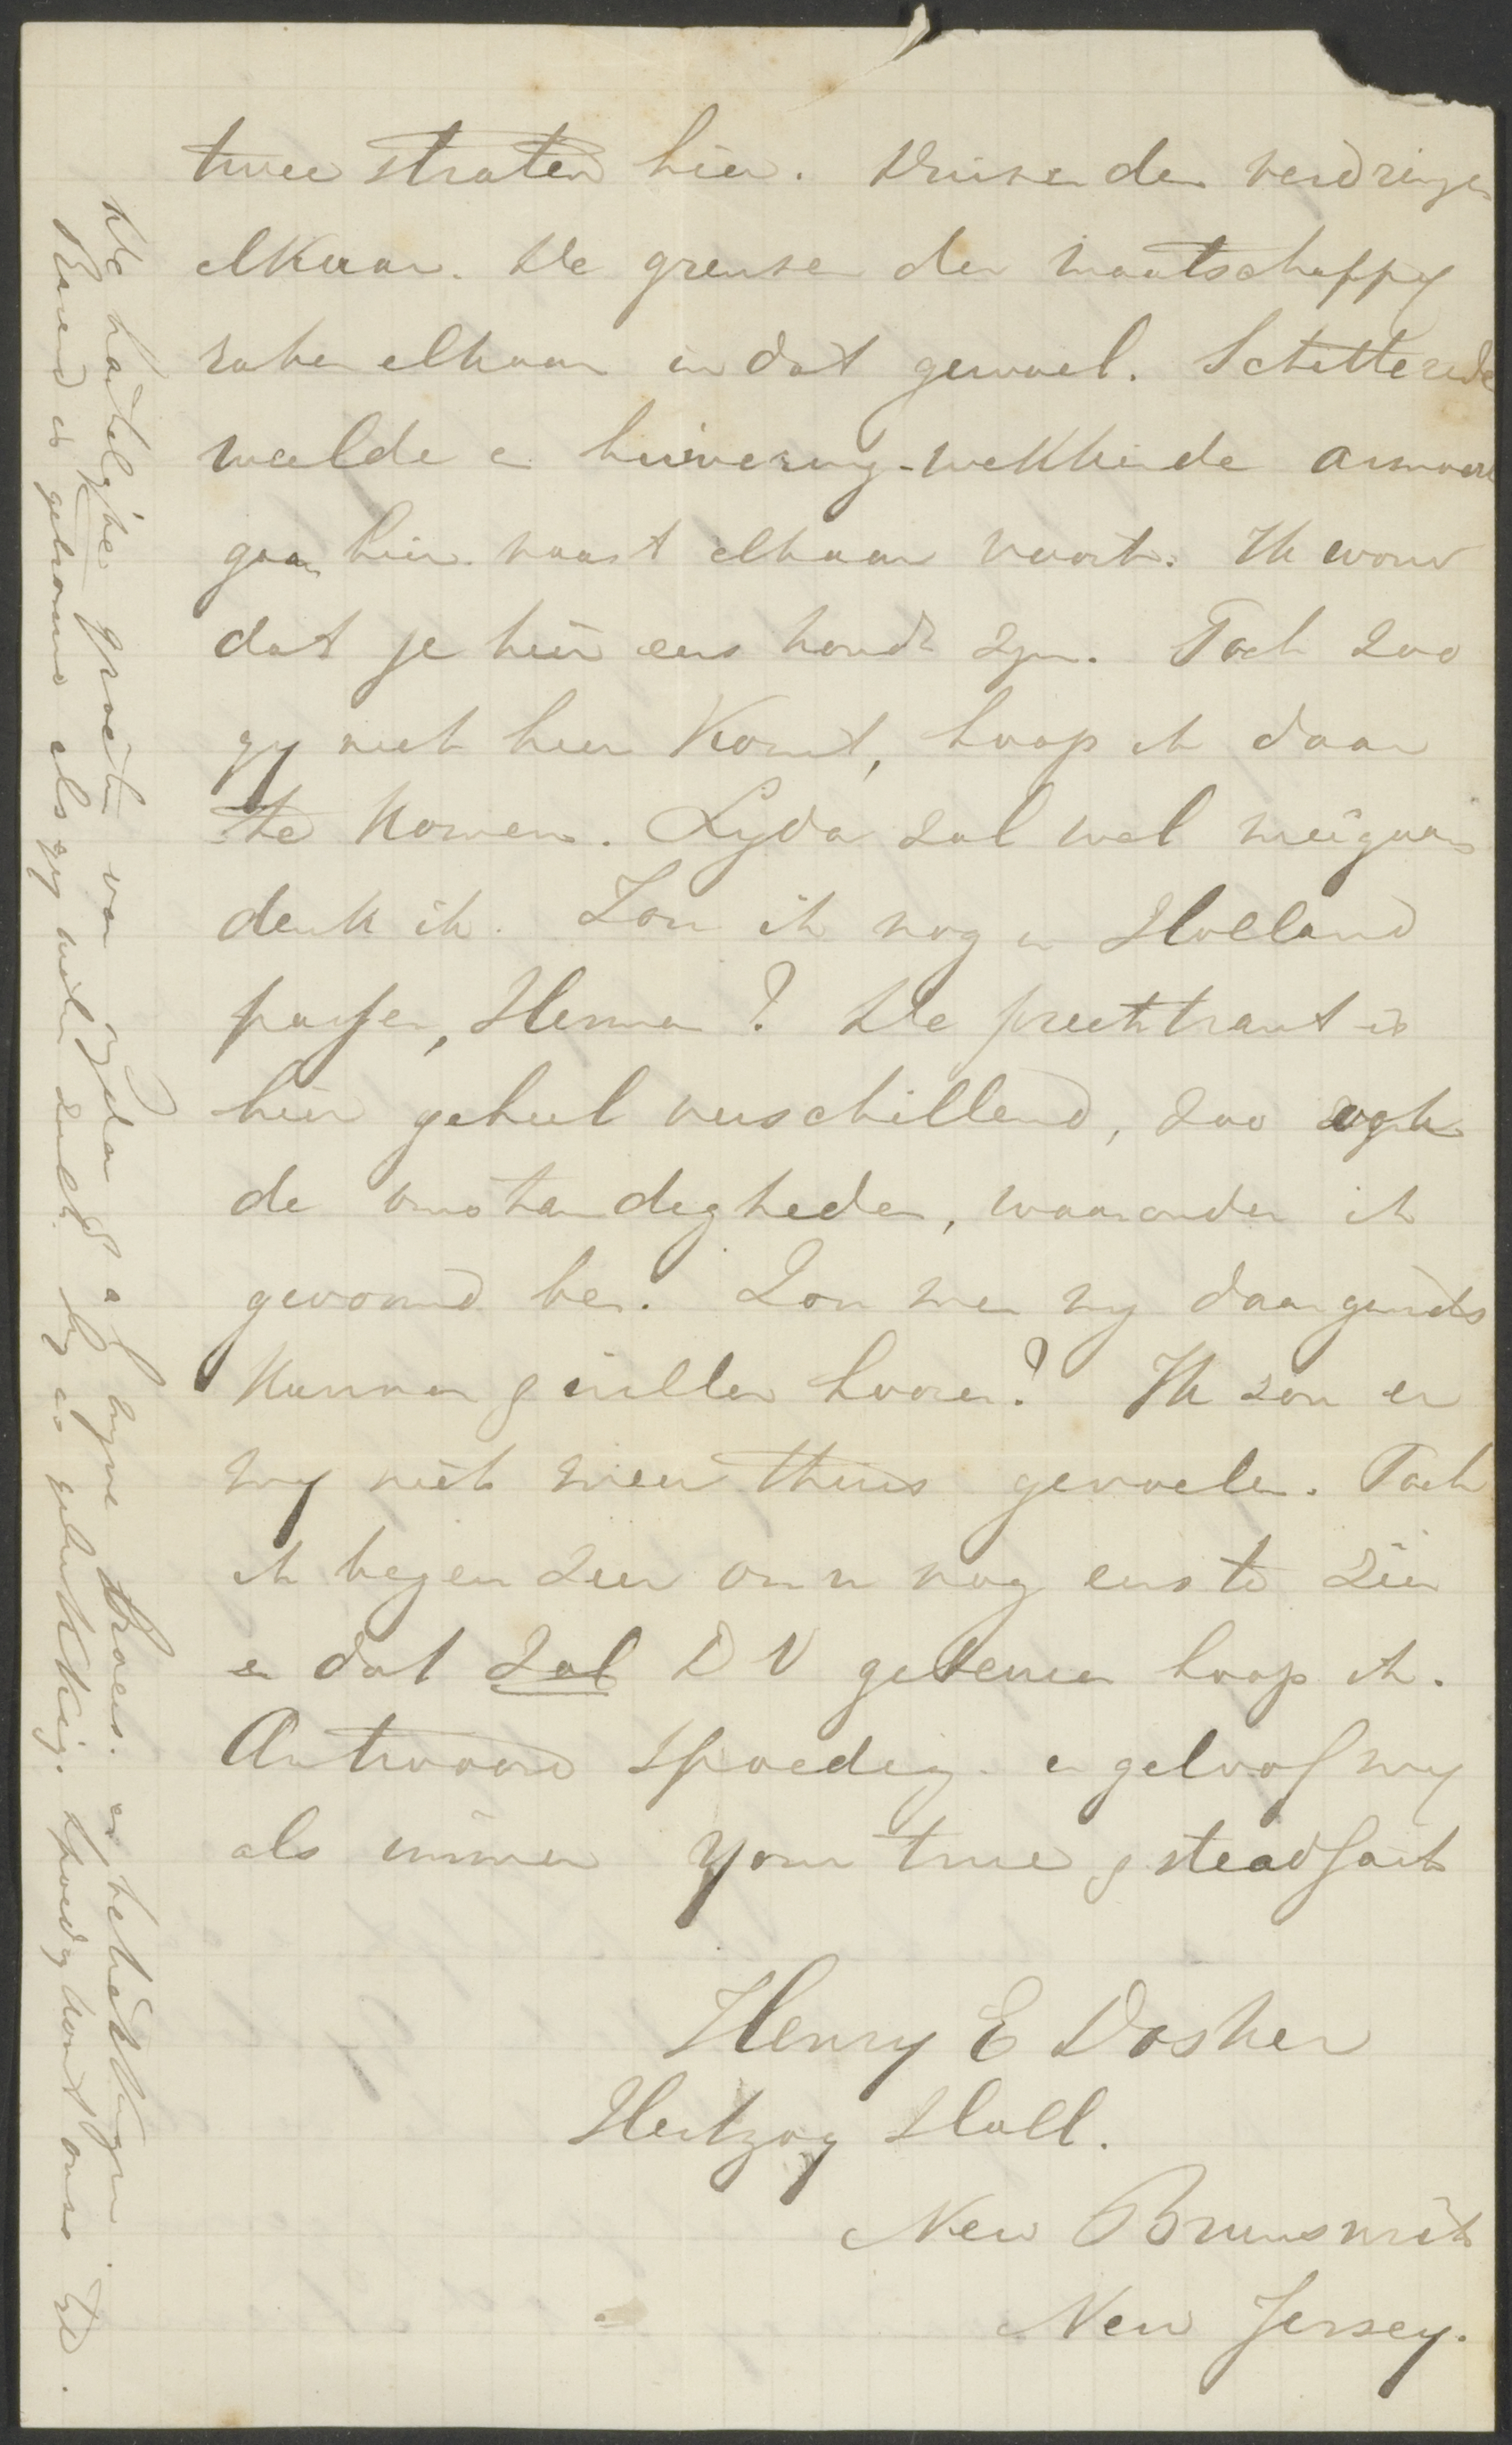 twee straten hier. Duizenden verdringen
elkaar. De grenzen der maatschappy
raken elkaar in dat gewoel. Schitterende
weelde en huivering-wekkende armoede
gaan hier naast elkaar voort. Ik wou
dat je hier eens kondt zyn. Toch zoo
gy niet hier komt, hoop ik daar
te komen. Lyda zal wel meegaan
denk ik. Zou ik nog in Holland
passen, Herman? De preektrant is
hier geheel verschillend, zoo ook
de omstandigheden, waaronder ik
gevormd ben. Zou men my daarginds
kunnen & willen hooren? Ik zou er
my niet meer thuis gevoelen. Toch
ik begeer zeer om u nog eens te zien
en dat zal DV gebeuren hoop ik.
Antwoord spoedig en geloof my
als immer your true & steadfast
Henry E Dosker
Hertzog Hall.
New Brunswick
New Jersey.
De hartelyke groeten van Lyda & al myne broers.
Barend is getrouwd als gy weten zult. Hy is gelukkig. Spoedig komt onze tyd.